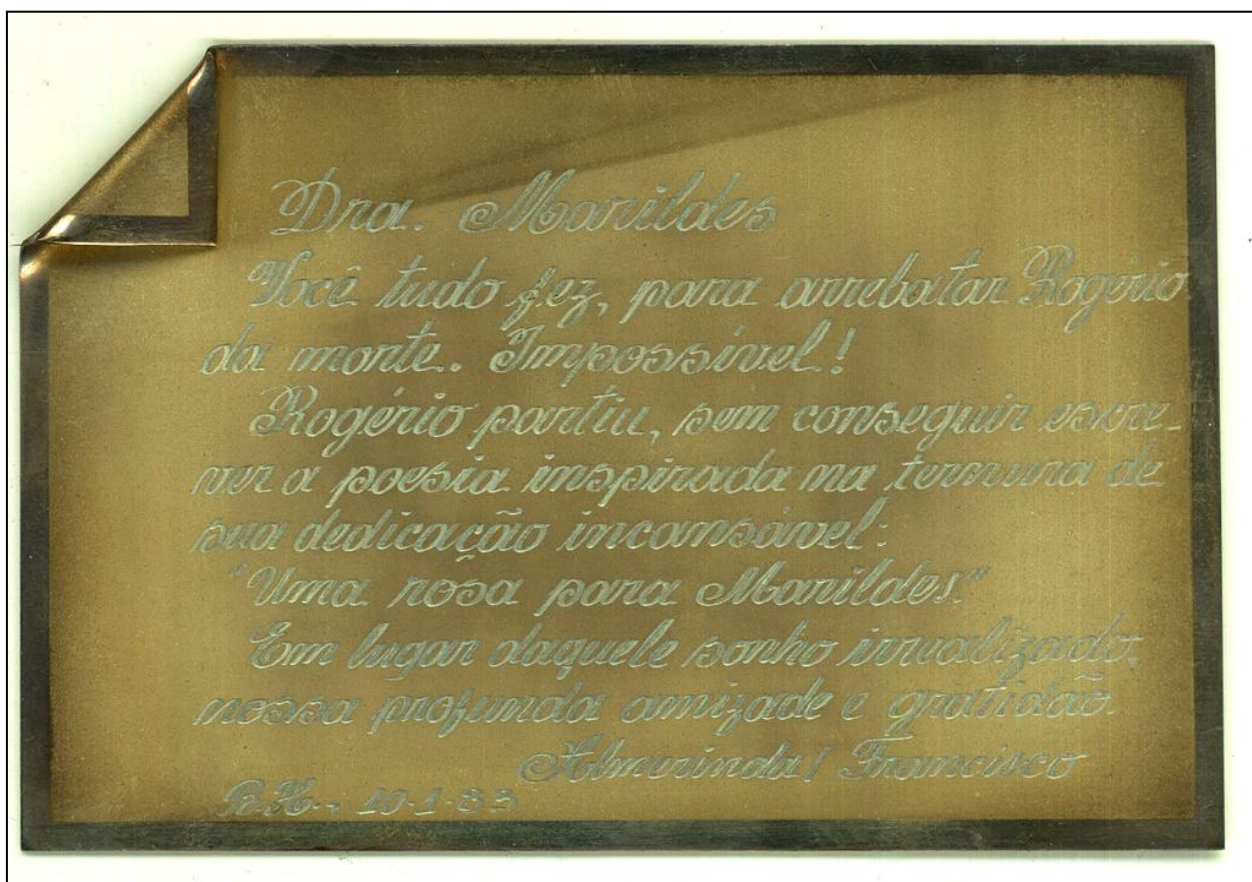 Dra. Marildes
Você tudo fez, para arrebatar Rogério
da morte. Impossível!
Rogério partiu, sem conseguir escre-
ver a poesia inspirada na ternura de
sua dedicação incansável:
"Uma rosa para Marildes."
Em lugar daquele sonho irrealizado,
nossa profunda amizade e gratidão.
Almerinda/ Francisco
B.H., 10-1-83